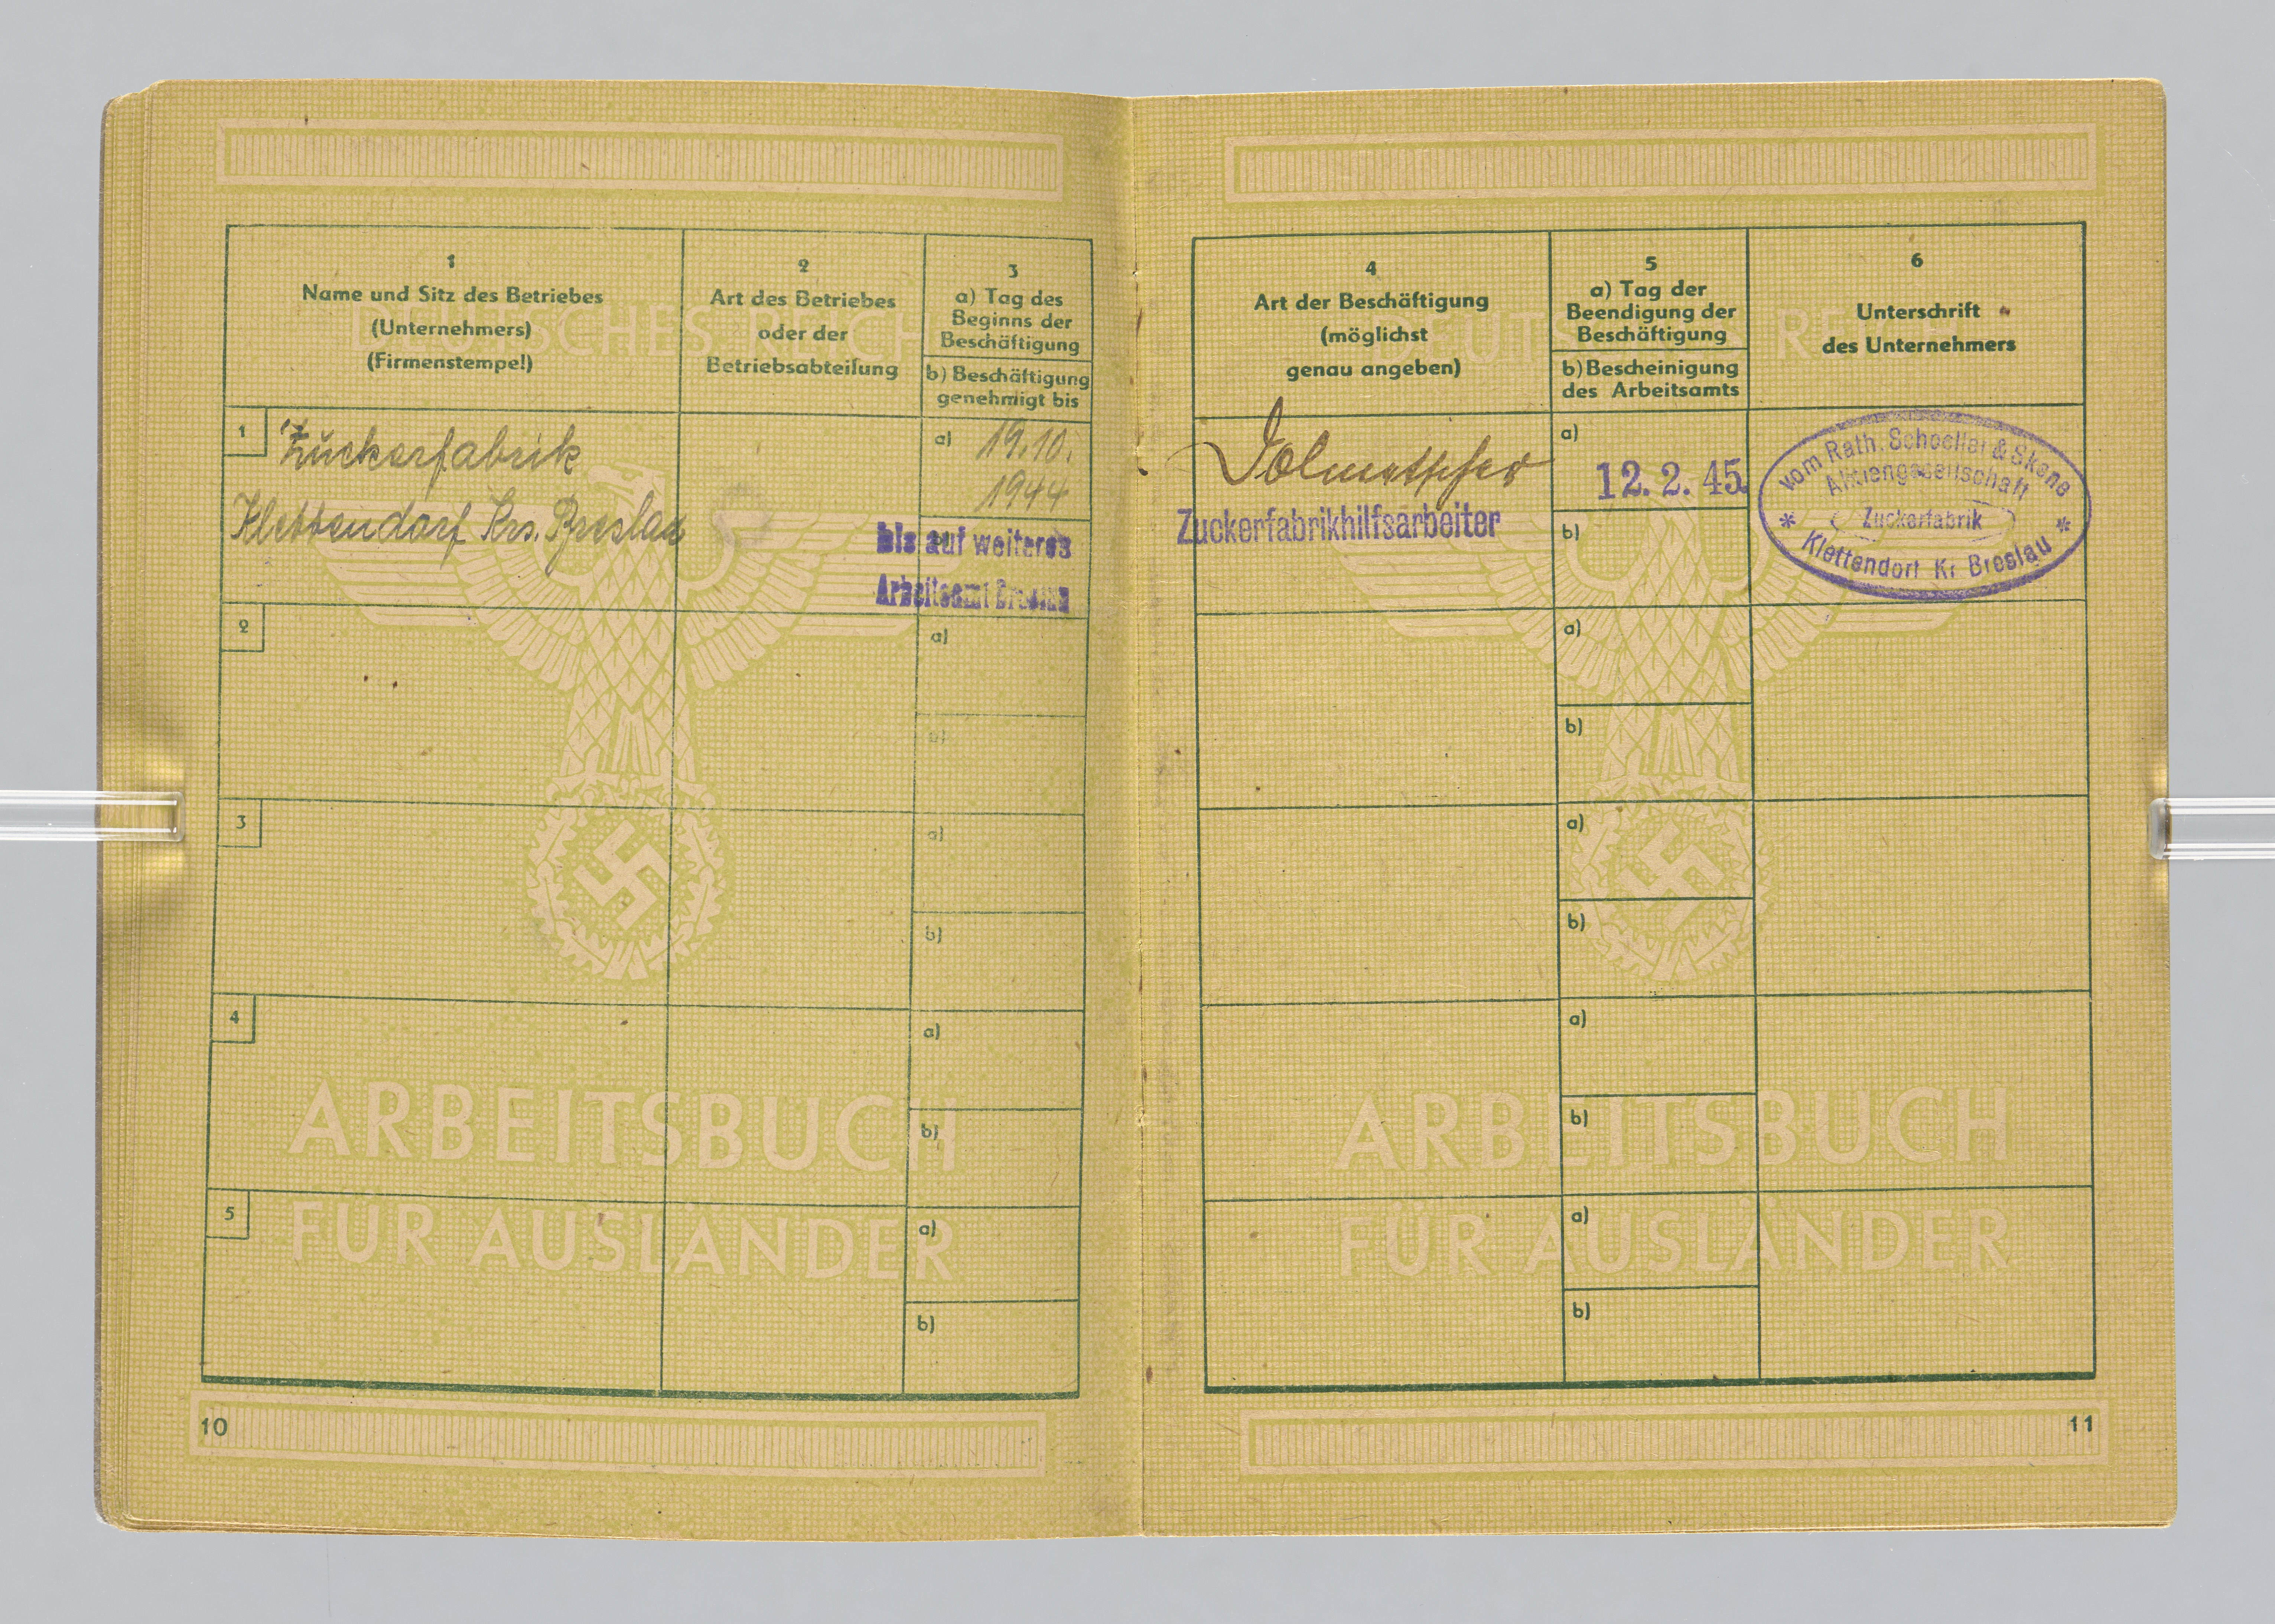 DEUTSCHES REICH
1
Name und Sitz des Betriebes
(Unternehmers)
(Firmenstempel)
2
Art des Betriebes
oder der
Betriebsabteilung
3
a) Tag des
Beginns der
Beschäftigung
b) Beschäftigung
genehmigt bis
1
Zuckerfabrik
Klettendorf Krs. Breslau
a) 19.10.
1944
b)
bis auf weiteres
Arbeitsamt Breslau
2
a)
b)
3
a)
b)
4
a)
b)
5
a)
b)
ARBEITSBUCH
FÜR AUSLÄNDER
10
DEUTSCHES REICH
4
Art der Beschäftigung
(möglichst
genau angeben)
5
a) Tag der
Beendigung der
Beschäftigung
b) Bescheinigung
des Arbeitsamts
6
Unterschrift
des Unternehmers
Dolmetscher
Zuckerfabrikhilfsarbeiter
a)
12. 2. 45.
b)
vom Rath, Schoeller & Skene
Aktiengesellschaft
Zuckerfabrik
* Klettendorf Kr Breslau *
a)
b)
a)
b)
a)
b)
a)
b)
ARBEITSBUCH
FÜR AUSLÄNDER
11